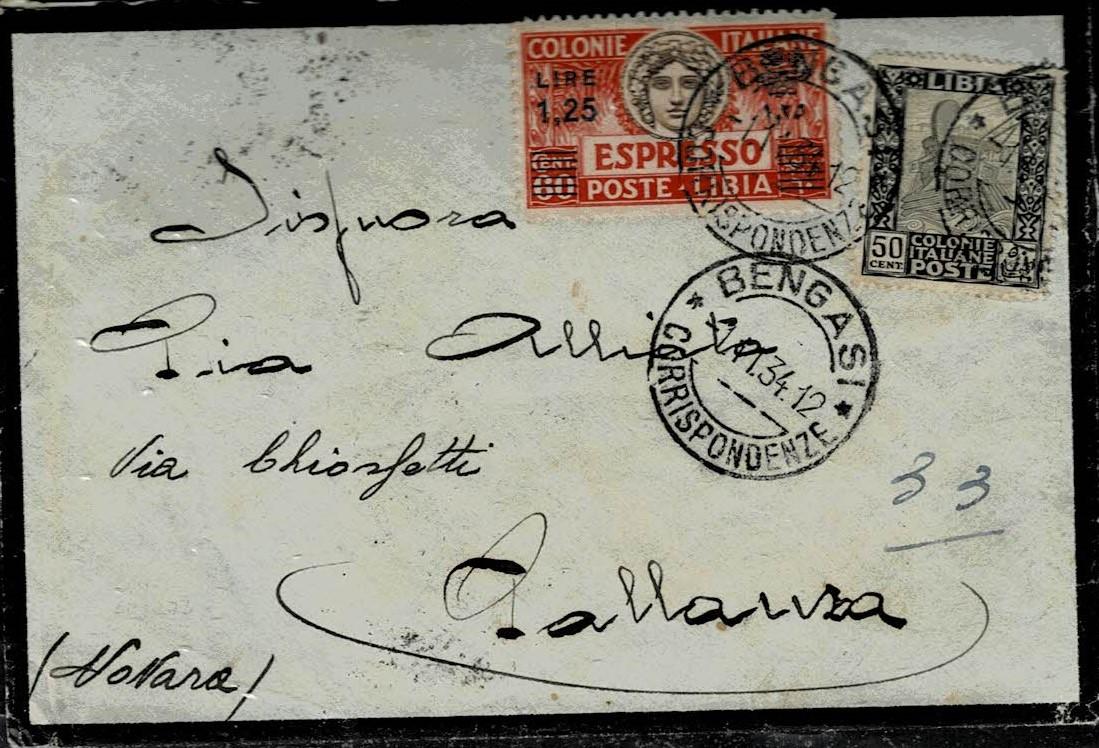 COLONIE ITALIANE
LIRE
1,25
CENT.
60
ESPRESSO
POSTE - LIBIA
BENGASI
CORRISPONDENZE
LIBIA
50
CENT.
COLONIE
ITALIANE
POSTE
* BENGASI *
34.12
CORRISPONDENZE
Signora
Pia
Via
Pallanza
(Novara)
33